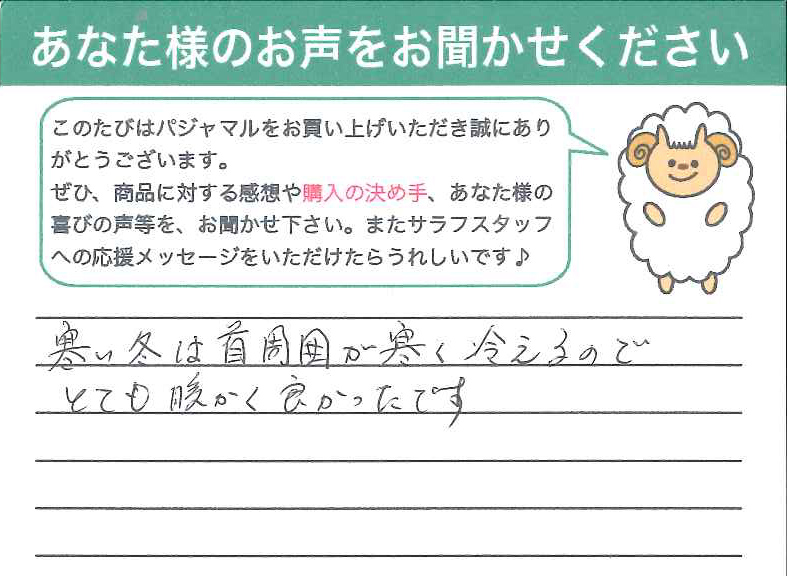 あなた様のお声をお聞かせください
このたびはパジャマルをお買い上げいただき誠にあり
がとうございます。
ぜひ、商品に対する感想や購入の決め手、あなた様の
喜びの声等を、お聞かせ下さい。またサラフスタッフ
への応援メッセージをいただけたらうれしいです♪
寒い冬は首周囲が寒く冷えるので
とても暖かく良かったです